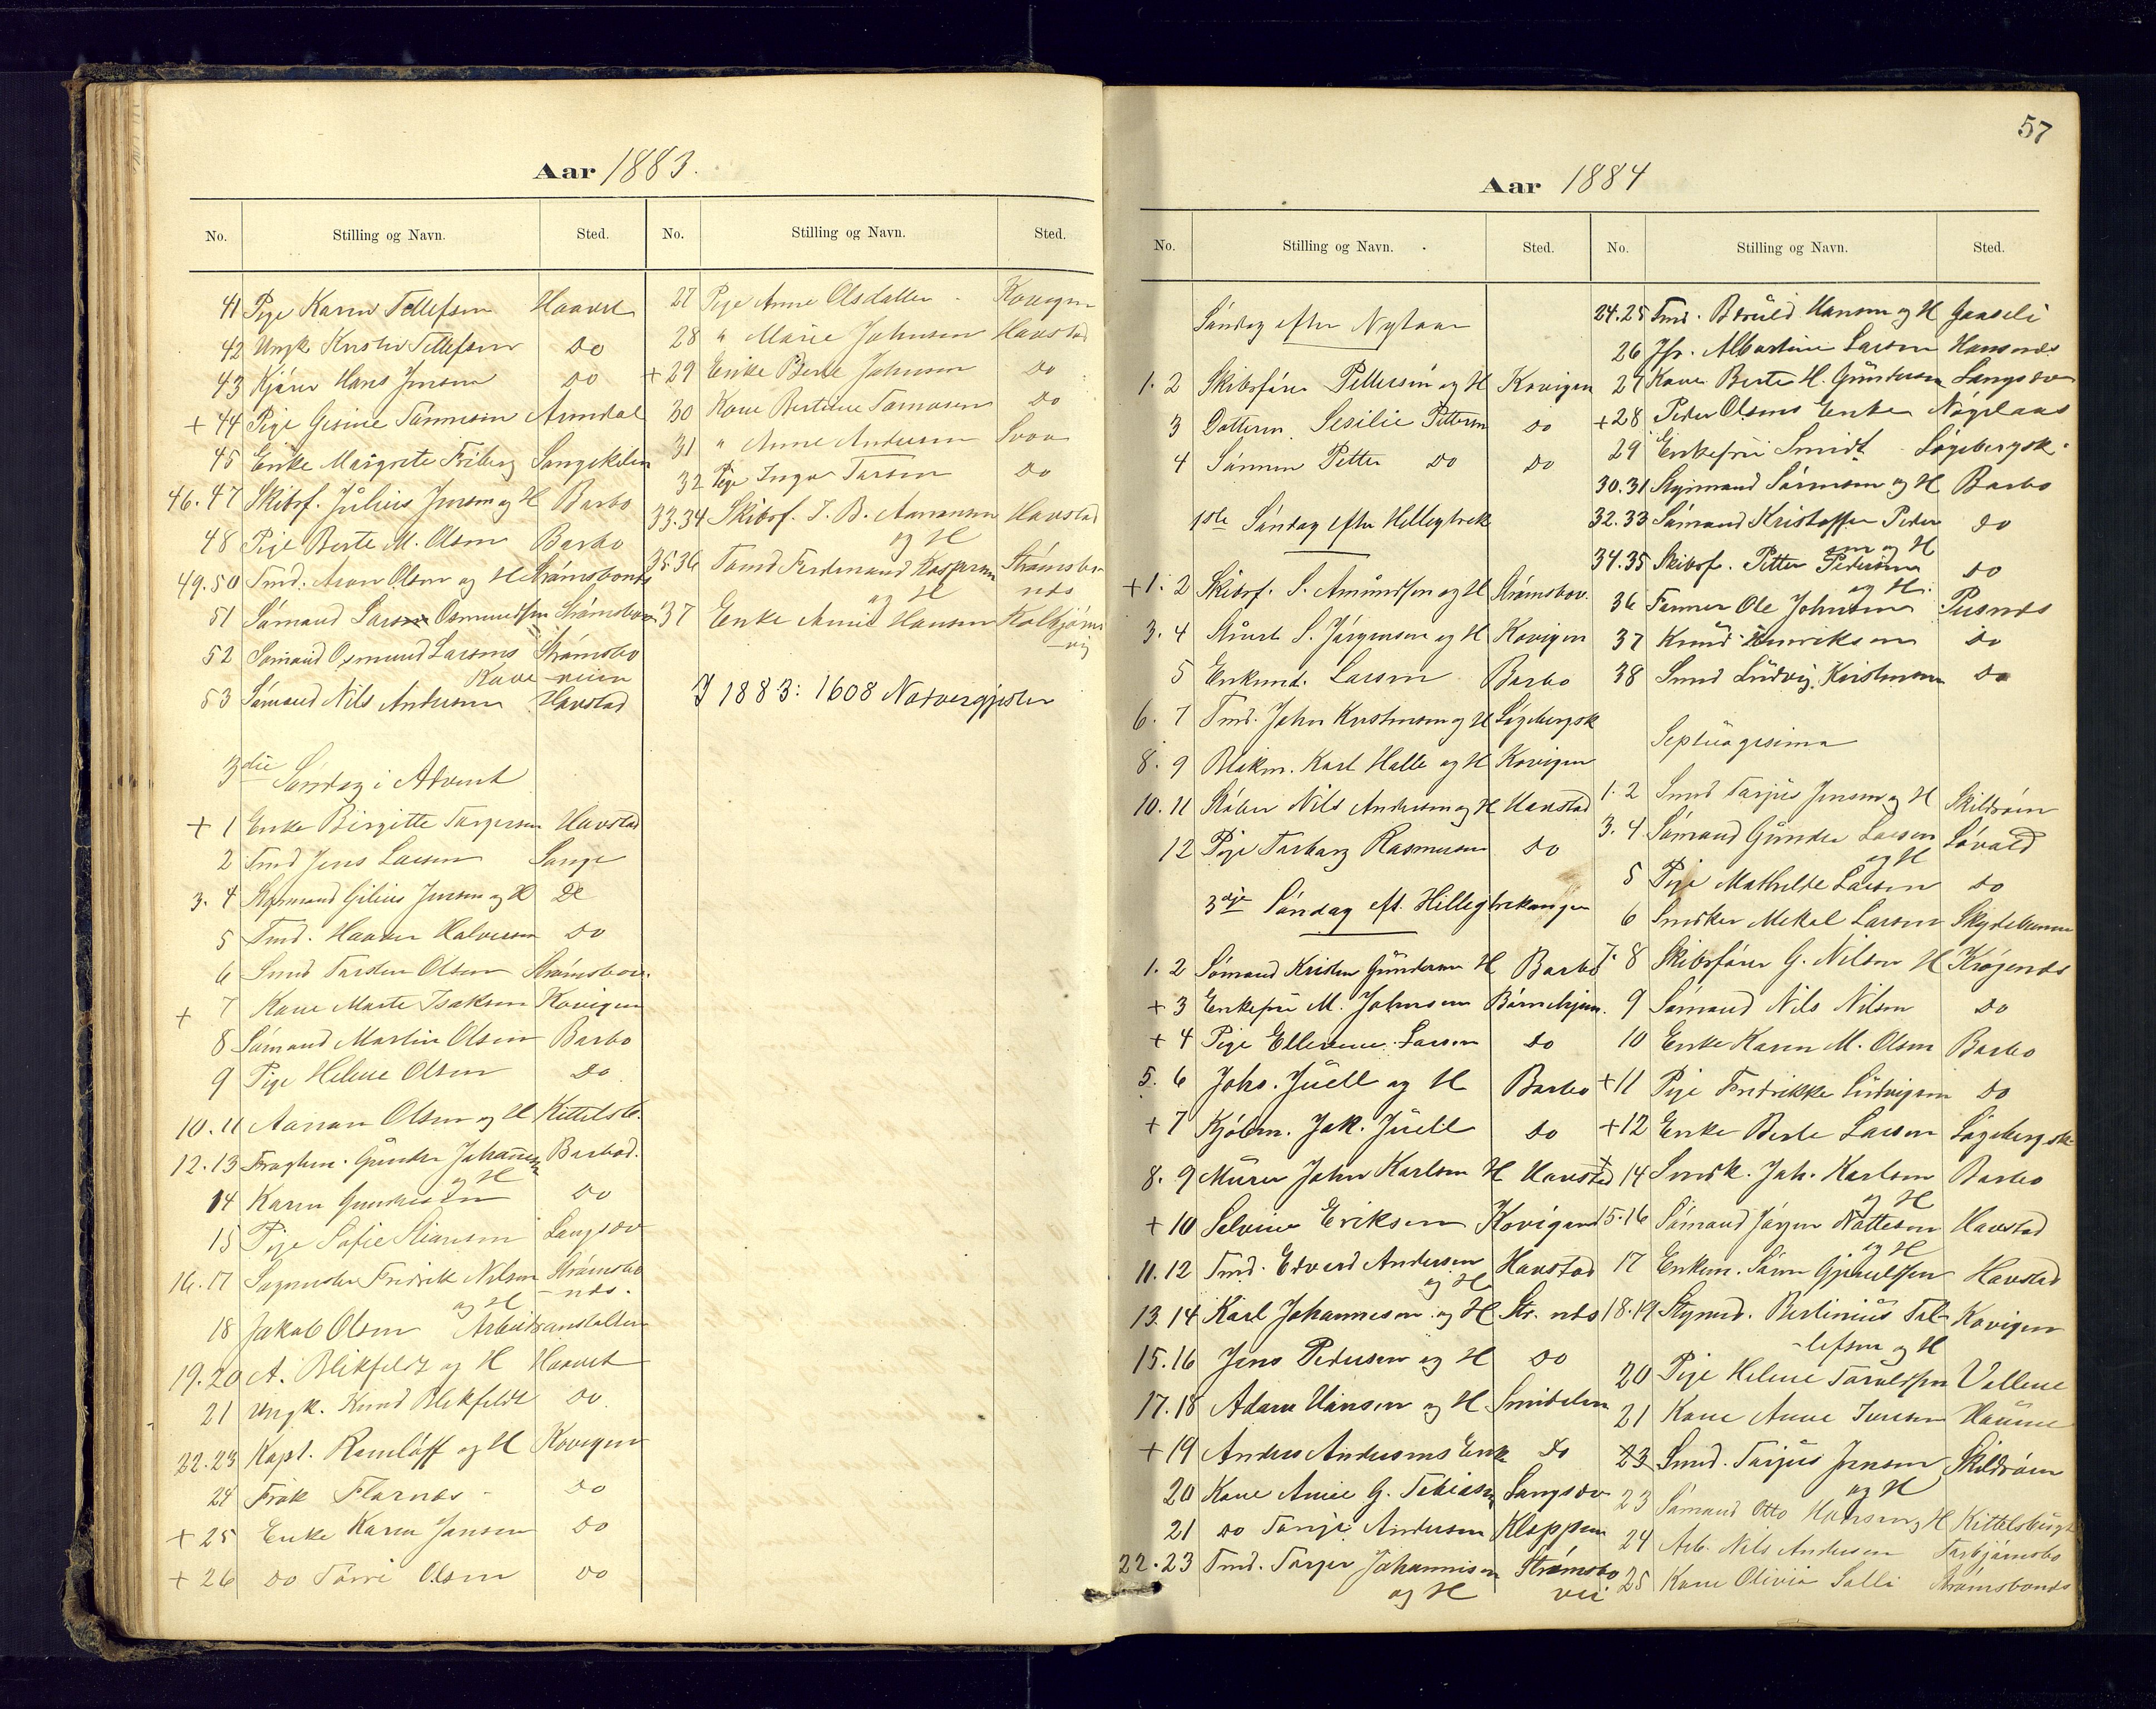 Aar 1883.
No. Stilling og Navn. Sted. No. Stilling og Navn. Sted.
41 Pige Karen Tellefsen Haavet
42 Ungk Kristen Tellefsen do
43 Kjører Hans Jensen do
+ 44 Pige Gesine Tønnesen Arendal
45 Enke Margrete Friberg Langekilen
46.47 Skibsf. Julius Jensen og H Barbo
48 Pige Berte M. Olsen Barbo
49.50 Tmd. Aron Olsen og H Strømsbonds
51 Sømand Lars Osmundsen Strømsbo
52 Sømand Osmund Larsens Strømsbo
Kone veien
53 Sømand Nils Andersen Havstad
3die Søndag i Advent
+ 1 Enke Birgitte Torgersen Havstad
2 Tmd Jens Larsen Lange
3.4 Styrmand Gilius Jensen og H do
5 Tmd. Haaver Halvorsen do
6 Smd Torsten Olsen Strømsbov.
+ 7 Kone Marte Isaksen Kovigen
8 Sømand Martin Olsen Barbo
9 Pige Helene Olsen do
10.11 Aanon Olsen og H Kittelsb.
12.13 Fragtm. Gunder Johannesen Barbod.
og H
14 Karen Gundersen do
15 Pige Sofie Stiansen Langsev
16.17 Sagmester Fredrik Nilsen Strømsbo
og H nds.
18 Jakob Olsen Arbeidsanstalten
19.20 A. Blikfeldt og H Haavet
21 Ungk. Knud Blikfeldt do
22.23 Kapt. Ramløff og H Kovigen
24 Frøk Flornes do
+ 25 Enke Karen Jansen do
+ 26 do Tørre Olsen do
27 Pige Anne Olsdatter Kovigen
28 " Marie Johnsen Havstad
+ 29 Enke Berte Johnsen do
30 Kone Bertine Tomasen do
31 " Anne Andersen Svoa
32 Pige Inga Tarsen do
33.34 Skibsf. J. B. Aanensen Havstad
og H
35.36 Tømd Ferdinand Kaspersen Strømsbo
og H nds
37 Enke Anne Hansen Kolbjørns
vig
I 1883: 1608 Nadvergjester
57
Aar 1884
No. Stilling og Navn. Sted. No. Stilling og Navn. Sted.
Søndag efter Nytaar
1.2 Skibsfører Pettersen og H Kovigen
3 Datteren Sesilie Pettersen do
4 Sønnen Petter do do
1ste Søndag efter Helligtrek
+ 1.2 Skibsf. S. Amundsen og H Strømsbov.
3.4 Stuert S. Jørgensen og H Kovigen
5 Enkemd. Larsen Barbo
6.7 Tmd. John Kristensen og H Løgebergsk
8.9 Blokm. Karl Halle og H Kovigen
10.11 Støber Nils Andersen og H Havstad
12 Pige Torborg Rasmussen do
3dje Søndag eft. Helligtrekonger
1.2 Sømand Kristen Gundersen H Barbo
+ 3 Enkefru M. Johnsen Børnehjem.
+ 4 Pige Ellevine Larsen do
5.6 Johs. Juell og H Barbo
+ 7 Kjøbm. Jak. Juell do
8.9 Murer John Karlsen H Havstad
+ 10 Selvine Eriksen Kovigen
11.12 Tmd. Edvard Andersen Havstad
og H
13.14 Karl Johannesen og H Str. nds
15.16 Jens Pedersen og H do
17.18 Adam Hansen og H Smidelen
+ 19 Anders Andersens Enke do
20 Kone Anne G. Tobiasen Langsev
21 do Tonje Andersen Kloppen
22.23 Tmd. Torger Johannesen Strømsbo
og H vei
24.25 Tmd. Bdruld Hansen og H Gaaseli
26 Jfr. Albertine Larsen Hansnæs
27 Kone Berte H. Gundersen Langsev
+ 28 Peder Olsens Enke Nøgelaas
29 Enkefru Smidt Løgebergsk.
30.31 Styrmand Sørensen og H Barbo
32.33 Sømand Kristoffer Peder do
sen og H
34.35 Skibsf. Petter Pedersen do
og H.
36 Tømmer Ole Johnsen Pusnes
37 Knud Henriksen do
38 Smed Ludvig Kristensen do
Septuagesima
1.2 Smd Tarjus Jensen og H Skildrøen
3.4 Sømand Gunder Larsen Løvold
og H
5 Pige Mathilde Larsen do
6 Snedker Mekal Larsen Skydebanen
7.8 Skibsfører G. Nilsen H Krøgenes
9 Sømand Nils Nilsen do
10 Enke Karen M. Olsen Barbo
+ 11 Pige Fredrikke Ludvigsen do
+ 12 Enke Berte Larsen Løgebergsk
+ 14 Snedk. Joh. Karlsen Barbo
og H
15.16 Sømand Jørgen Nottesen Havstad
og H
17 Enkem. Søren Gjeruldsen Havstad
18.19 Styrmd. Bertinius Tel Kovigen
-lefsen og H
20 Pige Helene Taraldsen Vollene
21 Kone Anne Iversen Haune
23 Smd. Tarjus Jensen Skildrøen
og H
23 Sømand Otto Hansen og H Kittelsbugt
24 Arb. Nils Andersen Torbjørnsbo
25 Kone Olivia Salli Strømsbonds